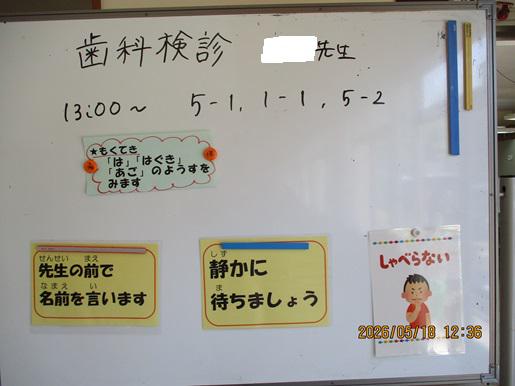 歯科検診 先生
13:00～ 5-1, 1-1, 5-2
★もくてき
「は」「はぐき」
「あご」のようすを
みます
せんせい まえ
先生の前で
なまえ い
名前を言います
しず
静かに
ま
待ちましょう
しゃべらない
2026/05/18 12:36